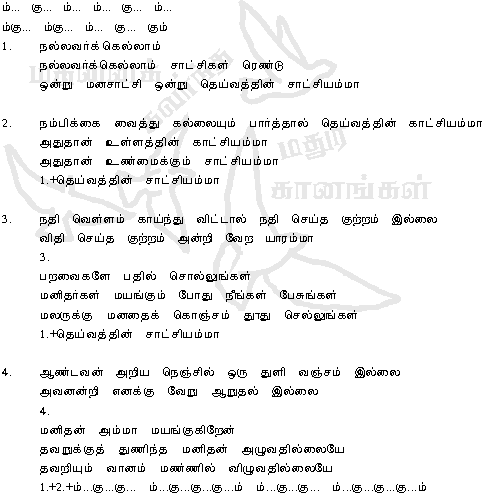 ம்... கு... ம்... ம்... கு... ம்...
ம்கு... ம்கு... ம்... கு... கும்
1. நல்லவர்க்கெல்லாம்
நல்லவர்க்கெல்லாம் சாட்சிகள் ரெண்டு
ஒன்று மனசாட்சி ஒன்று தெய்வத்தின் சாட்சியம்மா
2. நம்பிக்கை வைத்து கல்லையும் பார்த்தால் தெய்வத்தின் காட்சியம்மா
அதுதான் உள்ளத்தின் காட்சியம்மா
அதுதான் உண்மைக்கும் சாட்சியம்மா
1.+தெய்வத்தின் சாட்சியம்மா
3. நதி வெள்ளம் காய்ந்து விட்டால் நதி செய்த குற்றம் இல்லை
விதி செய்த குற்றம் அன்றி வேற யாரம்மா
3.
பறவைகளே பதில் சொல்லுங்கள்
மனிதர்கள் மயங்கும் போது நீங்கள் பேசுங்கள்
மலருக்கு மனதைக் கொஞ்சம் தூது செல்லுங்கள்
1.+தெய்வத்தின் சாட்சியம்மா
4. ஆண்டவன் அறிய நெஞ்சில் ஒரு துளி வஞ்சம் இல்லை
அவனன்றி எனக்கு வேறு ஆறுதல் இல்லை
4.
மனிதன் அம்மா மயங்குகிறேன்
தவறுக்குத் துணிந்த மனிதன் அழுவதில்லையே
தவறியும் வானம் மண்ணில் விழுவதில்லையே
1.+2.+ம்...கு...கு... ம்...கு...கு...கு...ம் ம்...கு...கு... ம்...கு...கு...கு...ம்
மதுர
கானங்கள்